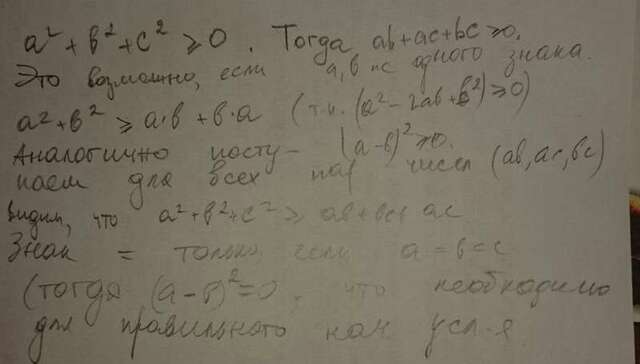 a² + b² + c² ≥ 0. Тогда ab+ac+bc ≥ 0.
Это возможно, если a, b и c одного знака.
a² + b² ≥ a·b + b·a (т.к. (a² - 2ab + b²) ≥ 0)
(a-b)² ≥ 0.
Аналогично посту-
паем для всех пар чисел (ab, ac, bc)
видим, что a² + b² + c² ≥ ab + bc + ac
Знак = только если a = b = c
(тогда (a-b)² = 0, что необходимо
для правильного нач. усл-я